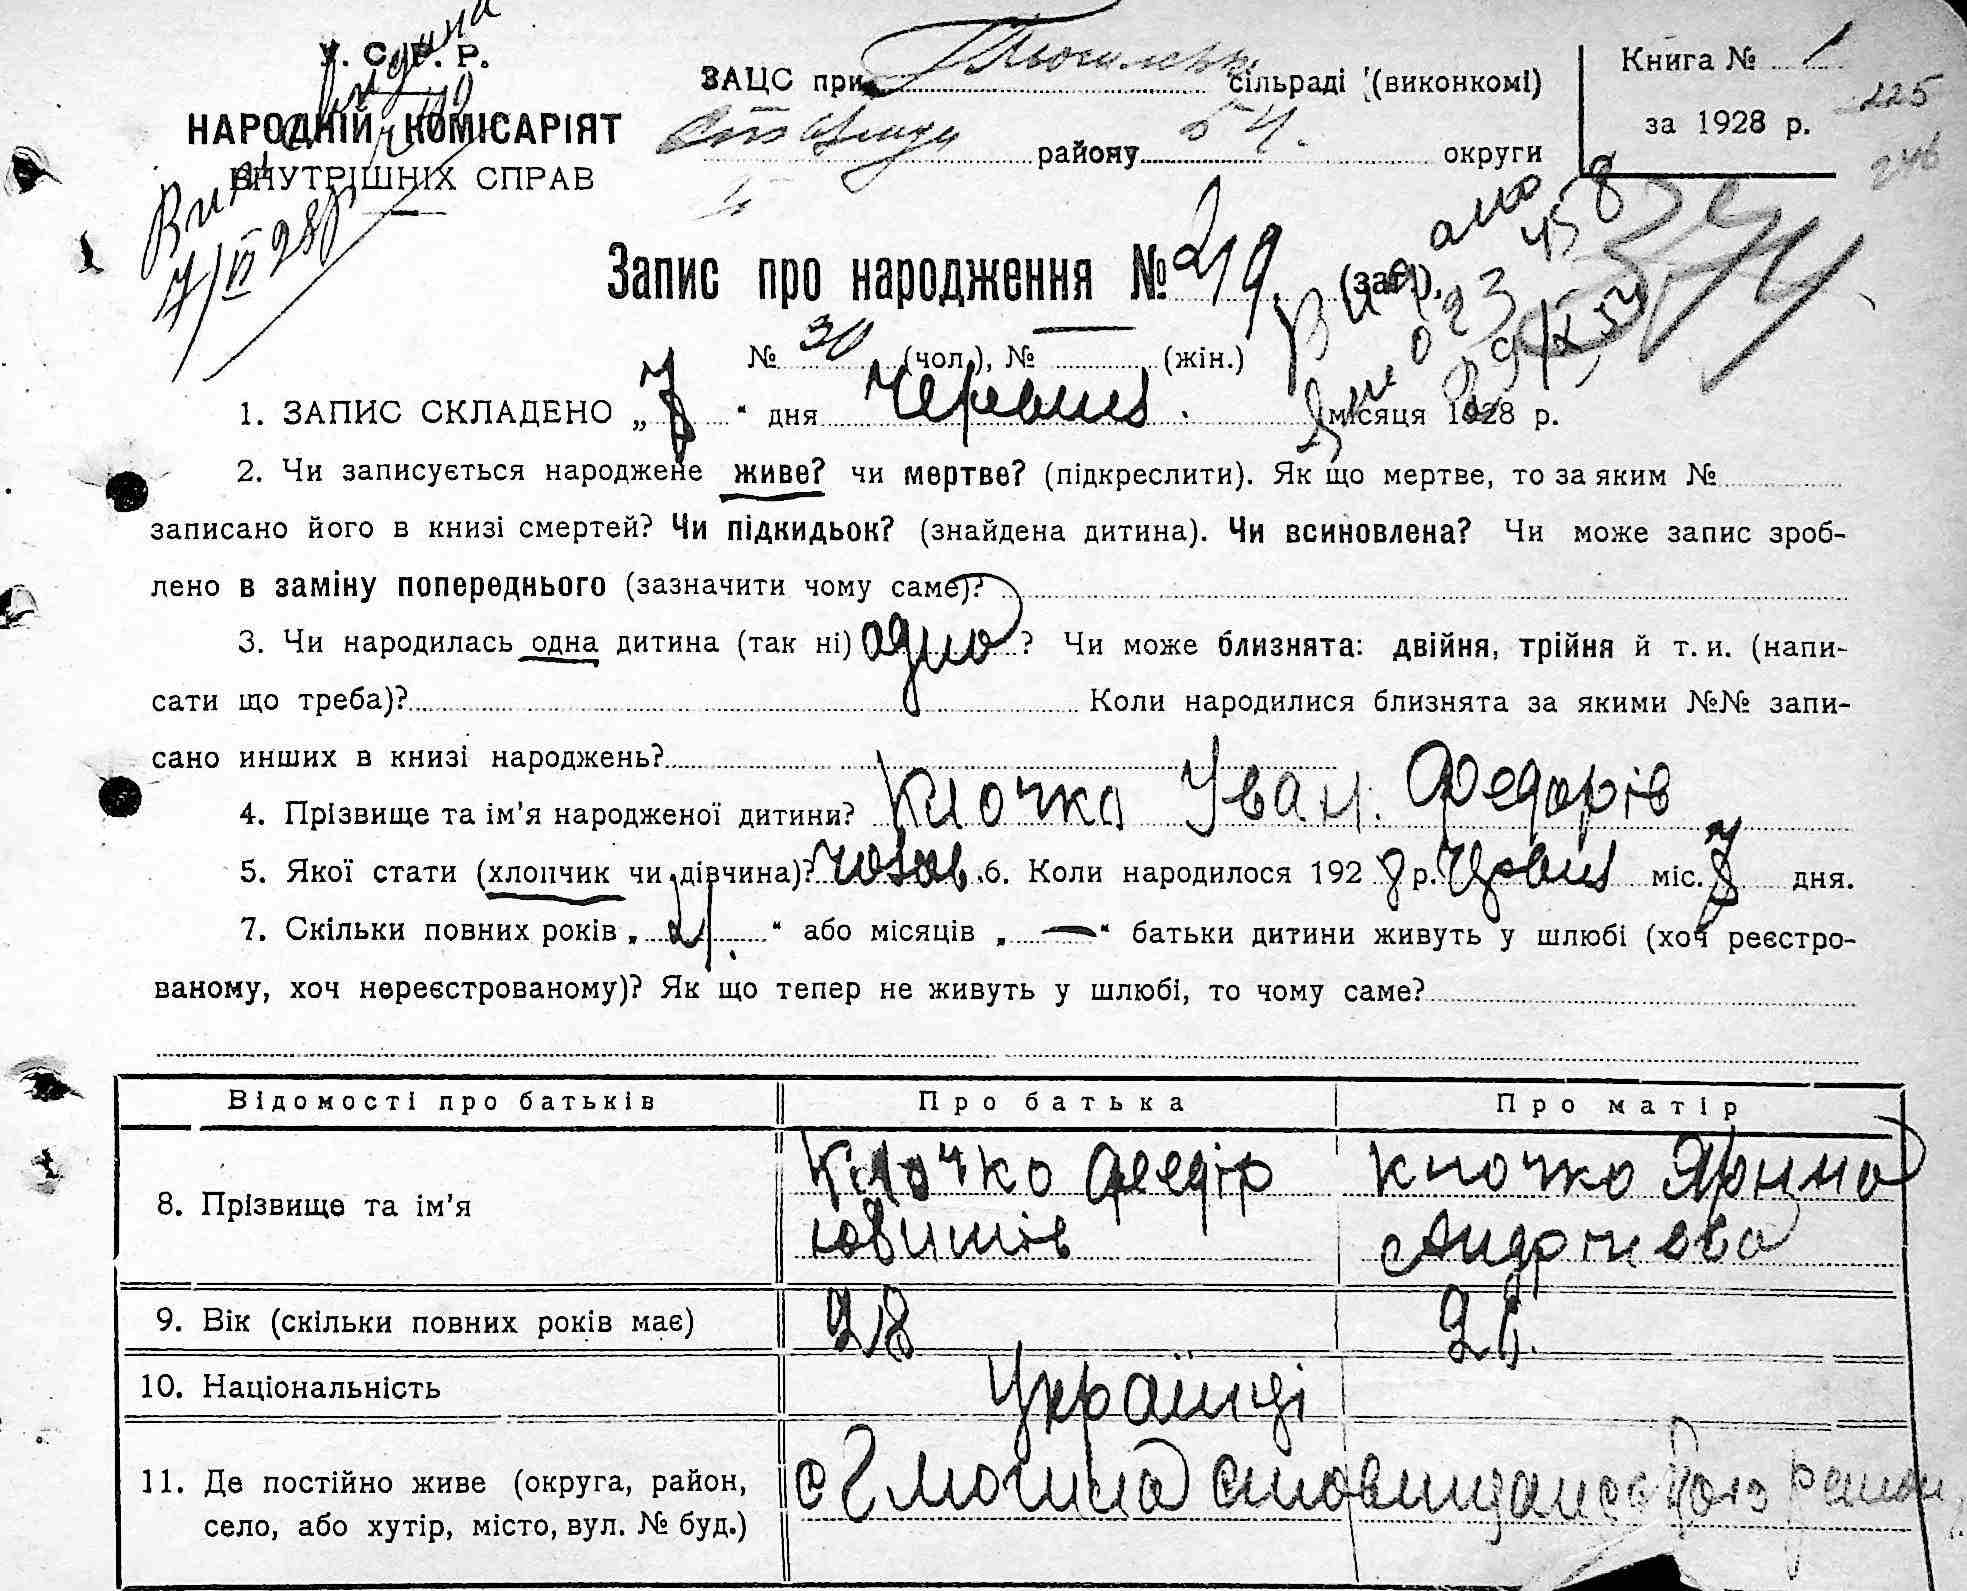 У. С. Р. Р.
НАРОДНІЙ КОМІСАРІЯТ
ВНУТРІШНІХ СПРАВ
7/VI 28 р
ЗАЦС при сільраді (виконкомі)
району Б Ц. округи
Книга № 1
за 1928 р.
225
246
Запис про народження № 219 (заг.),
№ 30 (чол.), № (жін.)
1. ЗАПИС СКЛАДЕНО „7“ дня червня місяця 1928 р.
2. Чи записується народжене живе? чи мертве? (підкреслити). Як що мертве, то за яким №
записано його в книзі смертей? Чи підкидьок? (знайдена дитина). Чи всиновлена? Чи може запис зроб-
лено в заміну попереднього (зазначити чому саме)?
3. Чи народилась одна дитина (так ні) одно? Чи може близнята: двійня, трійня й т. и. (напи-
сати що треба)? Коли народилися близнята за якими №№ запи-
сано инших в книзі народжень?
4. Прізвище та ім’я народженої дитини? Клочко Іван. Федорів
5. Якої стати (хлопчик чи дівчина)? чолов. 6. Коли народилося 1928 р. червня міс. 7 дня.
7. Скільки повних років „ “ або місяців „—“ батьки дитини живуть у шлюбі (хоч реєстро-
ваному, хоч нереєстрованому)? Як що тепер не живуть у шлюбі, то чому саме?
Відомості про батьків Про батька Про матір
8. Прізвище та ім’я Клочко Федір Клочко Ярина
Андріева
9. Вік (скільки повних років має) 28 26.
10. Національність Українці
11. Де постійно живе (округа, район,
село, або хутір, місто, вул. № буд.)